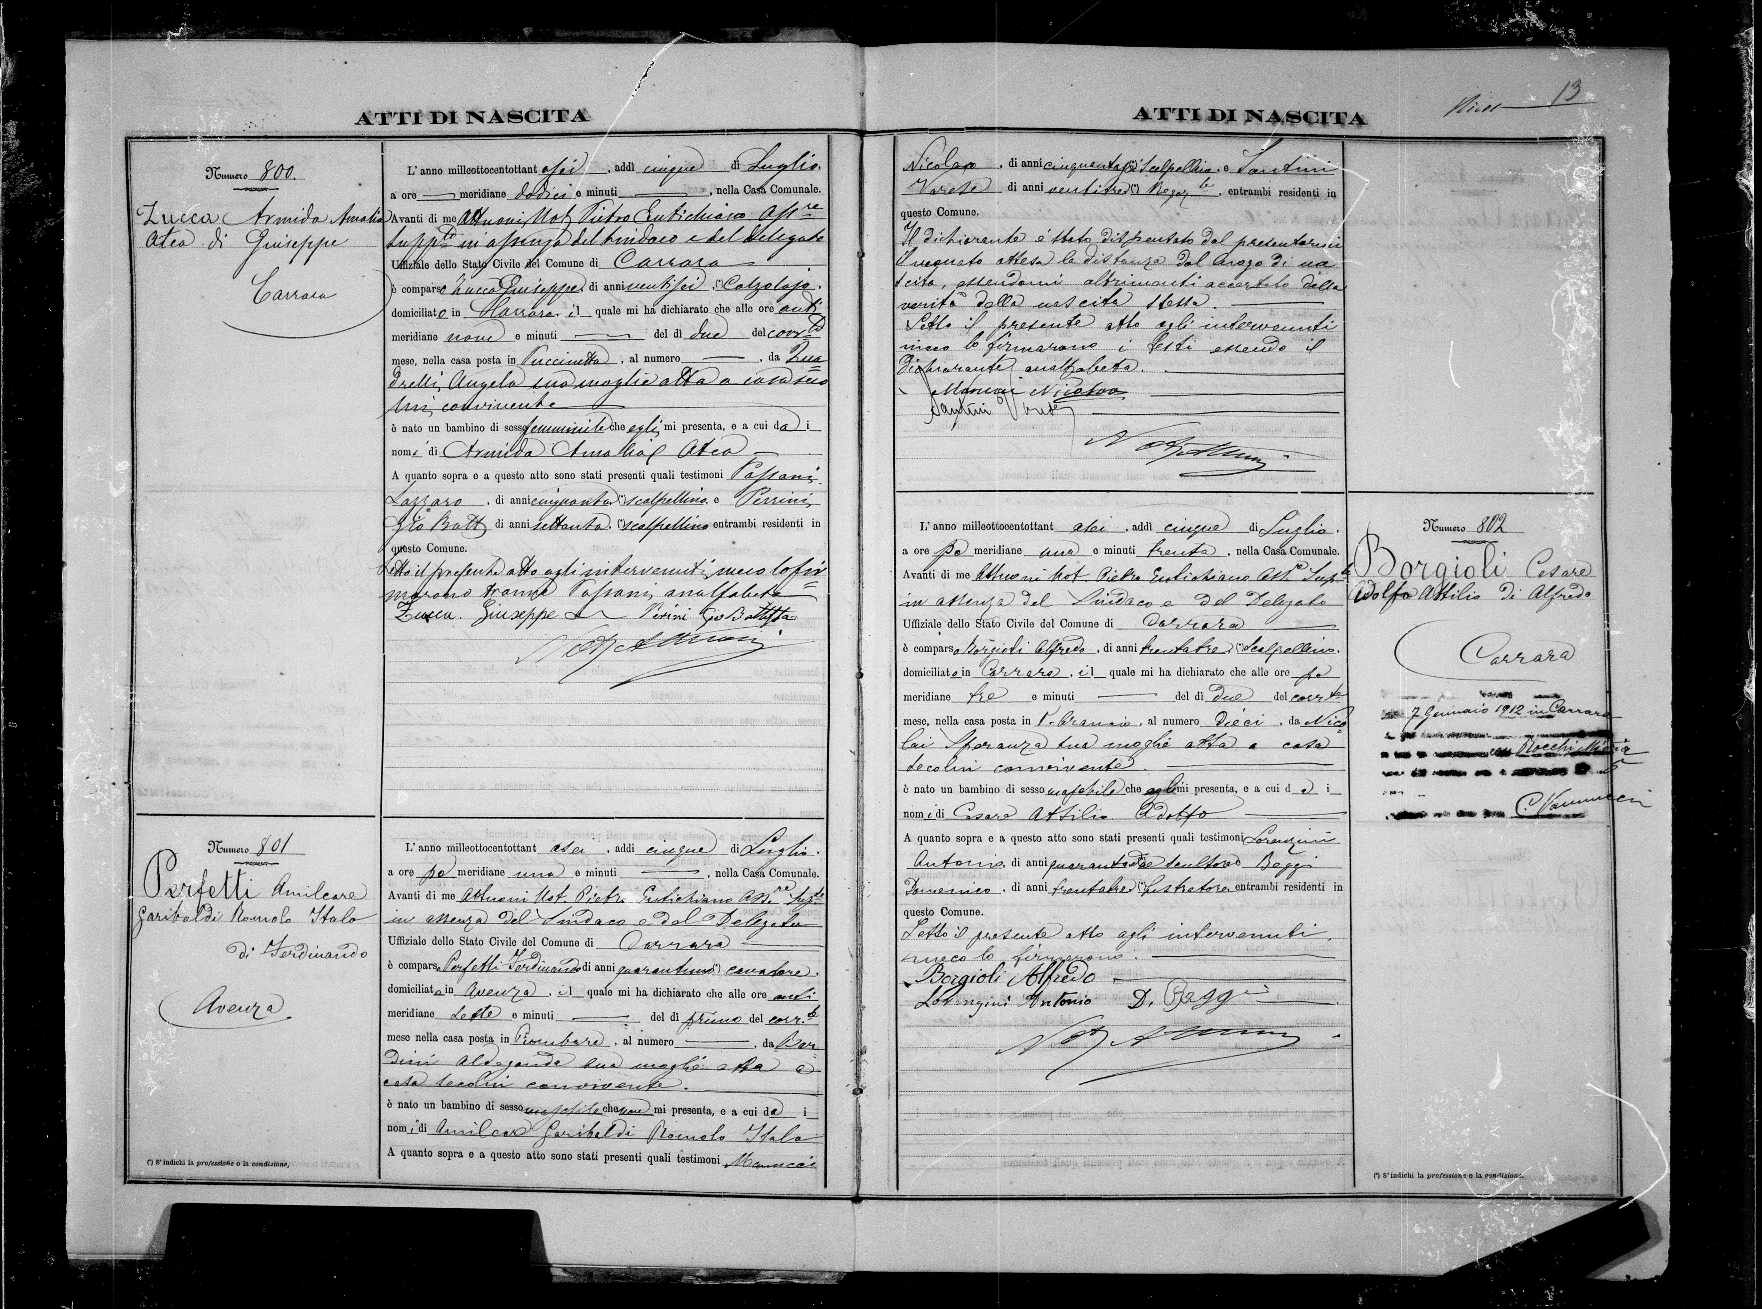 ATTI DI NASCITA
Numero 800.
Zucca Armida Amalia
Atea di Giuseppe
Carrara
L'anno milleottocentottantasei, addì cinque di Luglio.
a ore — meridiane dodici e minuti —, nella Casa Comunale.
Avanti di me Attuoni Not Pietro Eutichiano Assre
Suppte in assenza del Sindaco e del Delegato
Uffiziale dello Stato Civile del Comune di Carrara
è comparso Zucca Giuseppe, di anni ventisei, (*) Calzolajo.
domiciliato in Carrara, il quale mi ha dichiarato che alle ore anti
meridiane nove e minuti — del dì due del corrte
mese, nella casa posta in, al numero —, da
drelli Angela sua moglie atta a casa seco
lui convivente
è nato un bambino di sesso femminile che egli mi presenta, e a cui dà i
nomi di Armida Amalia Atea
A quanto sopra e a questo atto sono stati presenti quali testimoni Passani
Lazzaro, di anni cinquanta (*) scalpellino e Perrini
Gio Batt, di anni settanta, (*) scalpellino entrambi residenti in
questo Comune.
Letto il presente atto agli intervenuti, meco lo fir
marono tranne Passani, analfabeta
Zucca Giuseppe Perini Gio Battista
Not Attuoni
Numero 801
Perfetti Amilcare
Garibaldi Romolo Italo
di Ferdinando
Avenza.
L'anno milleottocentottantasei, addì cinque di Luglio.
a ore po meridiane una e minuti —, nella Casa Comunale.
Avanti di me Attuoni Not. Pietro Eutichiano Assre Supte
in assenza del Sindaco e del Delegato
Uffiziale dello Stato Civile del Comune di Carrara
è comparso Perfetti Ferdinando di anni quarantuno (*) cavatore.
domiciliato in Avenza, il quale mi ha dichiarato che alle ore anti
meridiane sette e minuti — del dì primo del corr.te
mese nella casa posta in, al numero —, da Bar
dini Aldegonda sua moglie atta a
casa secolui convivente.
è nato un bambino di sesso maschile che non mi presenta, e a cui dà i
nomi di Amilcare Garibaldi Romolo Italo
A quanto sopra e a questo atto sono stati presenti quali testimoni Menucci
(*) S'indichi la professione o la condizione.
ATTI DI NASCITA
13
Nicolao, di anni cinquanta (*) Scalpellino e Santini
Varese di anni ventitre (*) entrambi residenti in
questo Comune.
Il dichiarante è stato dispensato dal presentarmi
il neonato attesa la distanza dal luogo di na
scita, essendomi altrimenti accertato della
verità della nascita stessa
Letto il presente atto agli intervenuti
meco lo firmarono i testi essendo il
Dichiarante analfabeta.
Menucci Nicolao
Santini Varese
Not Attuoni
L'anno milleottocentottantasei, addì cinque di Luglio.
a ore po meridiane una e minuti trenta, nella Casa Comunale.
Avanti di me Attuoni Not. Pietro Eutichiano Assre Supte
in assenza del Sindaco e del Delegato
Uffiziale dello Stato Civile del Comune di Carrara
è comparso Borgioli Alfredo, di anni trentatre, (*) Scalpellino.
domiciliato in Carrara, il quale mi ha dichiarato che alle ore po
meridiane tre e minuti — del dì due del corrte
mese, nella casa posta in, al numero dieci, da Nico
lai Speranza sua moglie atta a casa
secolui convivente.
è nato un bambino di sesso maschile che egli mi presenta, e a cui dà i
nomi di Cesare Attilio Adolfo
A quanto sopra e a questo atto sono stati presenti quali testimoni Lorenzini
Antonio, di anni scultore e Baggi
Domenico, di anni trentatre (*) Lustratore entrambi residenti in
questo Comune.
Letto il presente atto agli intervenuti.
meco lo firmarono.
Borgioli Alfredo
Lorenzini Antonio D. Baggi
Not Attuoni
Numero 802
Borgioli Cesare
Adolfo Attilio di Alfredo
Carrara
7 Gennaio 1912 in Carrara
Rocchi Maria
C. Vannucci
(*) S'indichi la professione o la condizione.